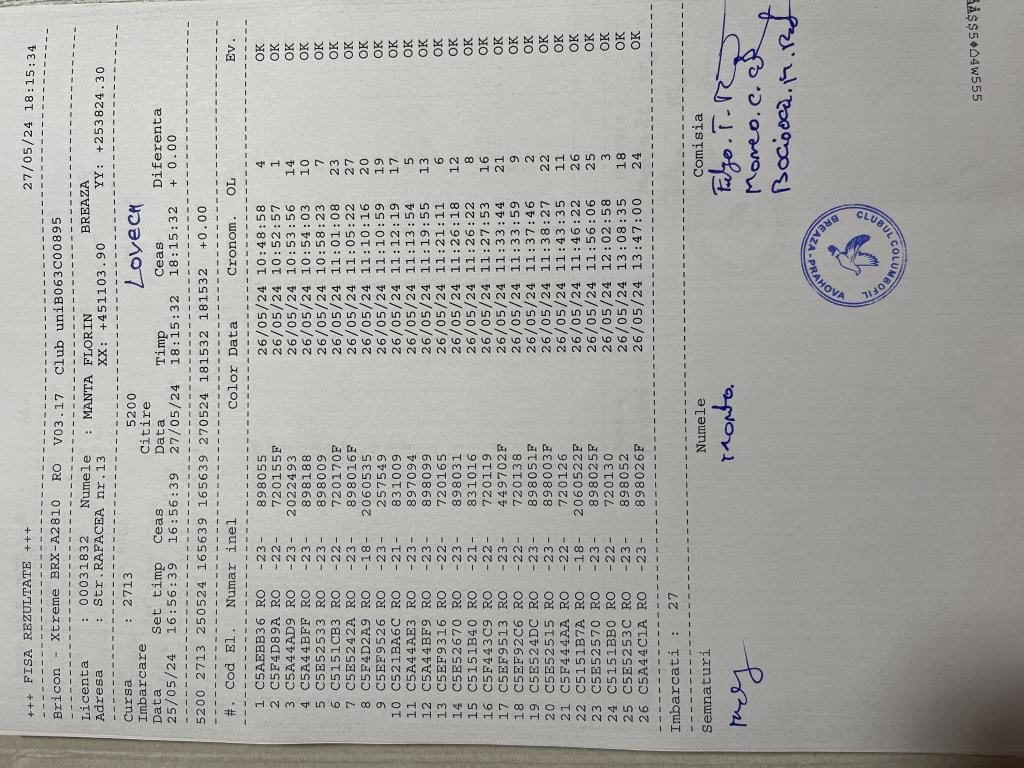 +++ FISA REZULTATE +++ 27/05/24 18:15:34
Bricon - Xtreme BRX-A2810 RO V03.17 Club uniB063C00895
Licenta : 00031832 Numele : MANTA FLORIN BREAZA
Adresa : Str.RAFACEA nr.13 XX: +451103.90 YY: +253824.30
Cursa : 2713 5200 Lovech
Imbarcare Citire
Data Set timp Ceas Data Timp Ceas Diferenta
25/05/24 16:56:39 16:56:39 27/05/24 18:15:32 18:15:32 + 0.00
5200 2713 250524 165639 165639 270524 181532 181532 +0.00
#. Cod El. Numar inel Color Data Cronom. OL Ev.
1 C5AEBB36 RO -23- 898055 26/05/24 10:48:58 4 OK
2 C5F4D89A RO -22- 720155F 26/05/24 10:52:57 1 OK
3 C5A44AD9 RO -23- 2022493 26/05/24 10:53:56 14 OK
4 C5A44BFF RO -23- 898188 26/05/24 10:54:03 10 OK
5 C5E52533 RO -23- 898009 26/05/24 10:58:23 7 OK
6 C5151CB3 RO -22- 720170F 26/05/24 11:01:08 23 OK
7 C5E5242A RO -23- 898016F 26/05/24 11:05:22 27 OK
8 C5F4D2A9 RO -18- 2060535 26/05/24 11:10:16 20 OK
9 C5EF9526 RO -23- 257549 26/05/24 11:10:59 19 OK
10 C521BA6C RO -21- 831009 26/05/24 11:12:19 17 OK
11 C5A44AE3 RO -23- 897094 26/05/24 11:13:54 5 OK
12 C5A44BF9 RO -23- 898099 26/05/24 11:19:55 13 OK
13 C5EF9316 RO -22- 720165 26/05/24 11:21:11 6 OK
14 C5E52670 RO -23- 898031 26/05/24 11:26:18 12 OK
15 C5151B40 RO -21- 831016 26/05/24 11:26:22 8 OK
16 C5F443C9 RO -22- 720119 26/05/24 11:27:53 16 OK
17 C5EF9513 RO -23- 449702F 26/05/24 11:33:44 21 OK
18 C5EF92C6 RO -22- 720138 26/05/24 11:33:59 9 OK
19 C5E524DC RO -23- 898051F 26/05/24 11:37:46 2 OK
20 C5E52515 RO -23- 898003F 26/05/24 11:38:27 22 OK
21 C5F444AA RO -22- 720126 26/05/24 11:43:35 11 OK
22 C5151B7A RO -18- 2060522F 26/05/24 11:46:22 26 OK
23 C5E52570 RO -23- 898025F 26/05/24 11:56:06 25 OK
24 C5151BB0 RO -22- 720130 26/05/24 12:02:58 3 OK
25 C5E5253C RO -23- 898052 26/05/24 13:08:35 18 OK
26 C5A44C1A RO -23- 898026F 26/05/24 13:47:00 24 OK
Imbarcati : 27
Semnaturi Numele Comisia
Manta
CLUBUL COLUMBOFIL
BREAZA-PRAHOVA